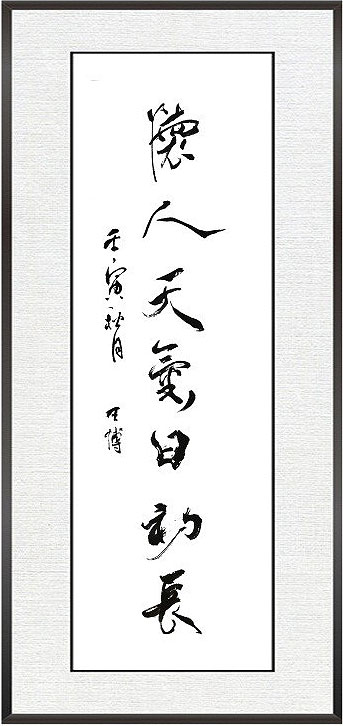 懷人天氣日初長
壬寅秋月 王博